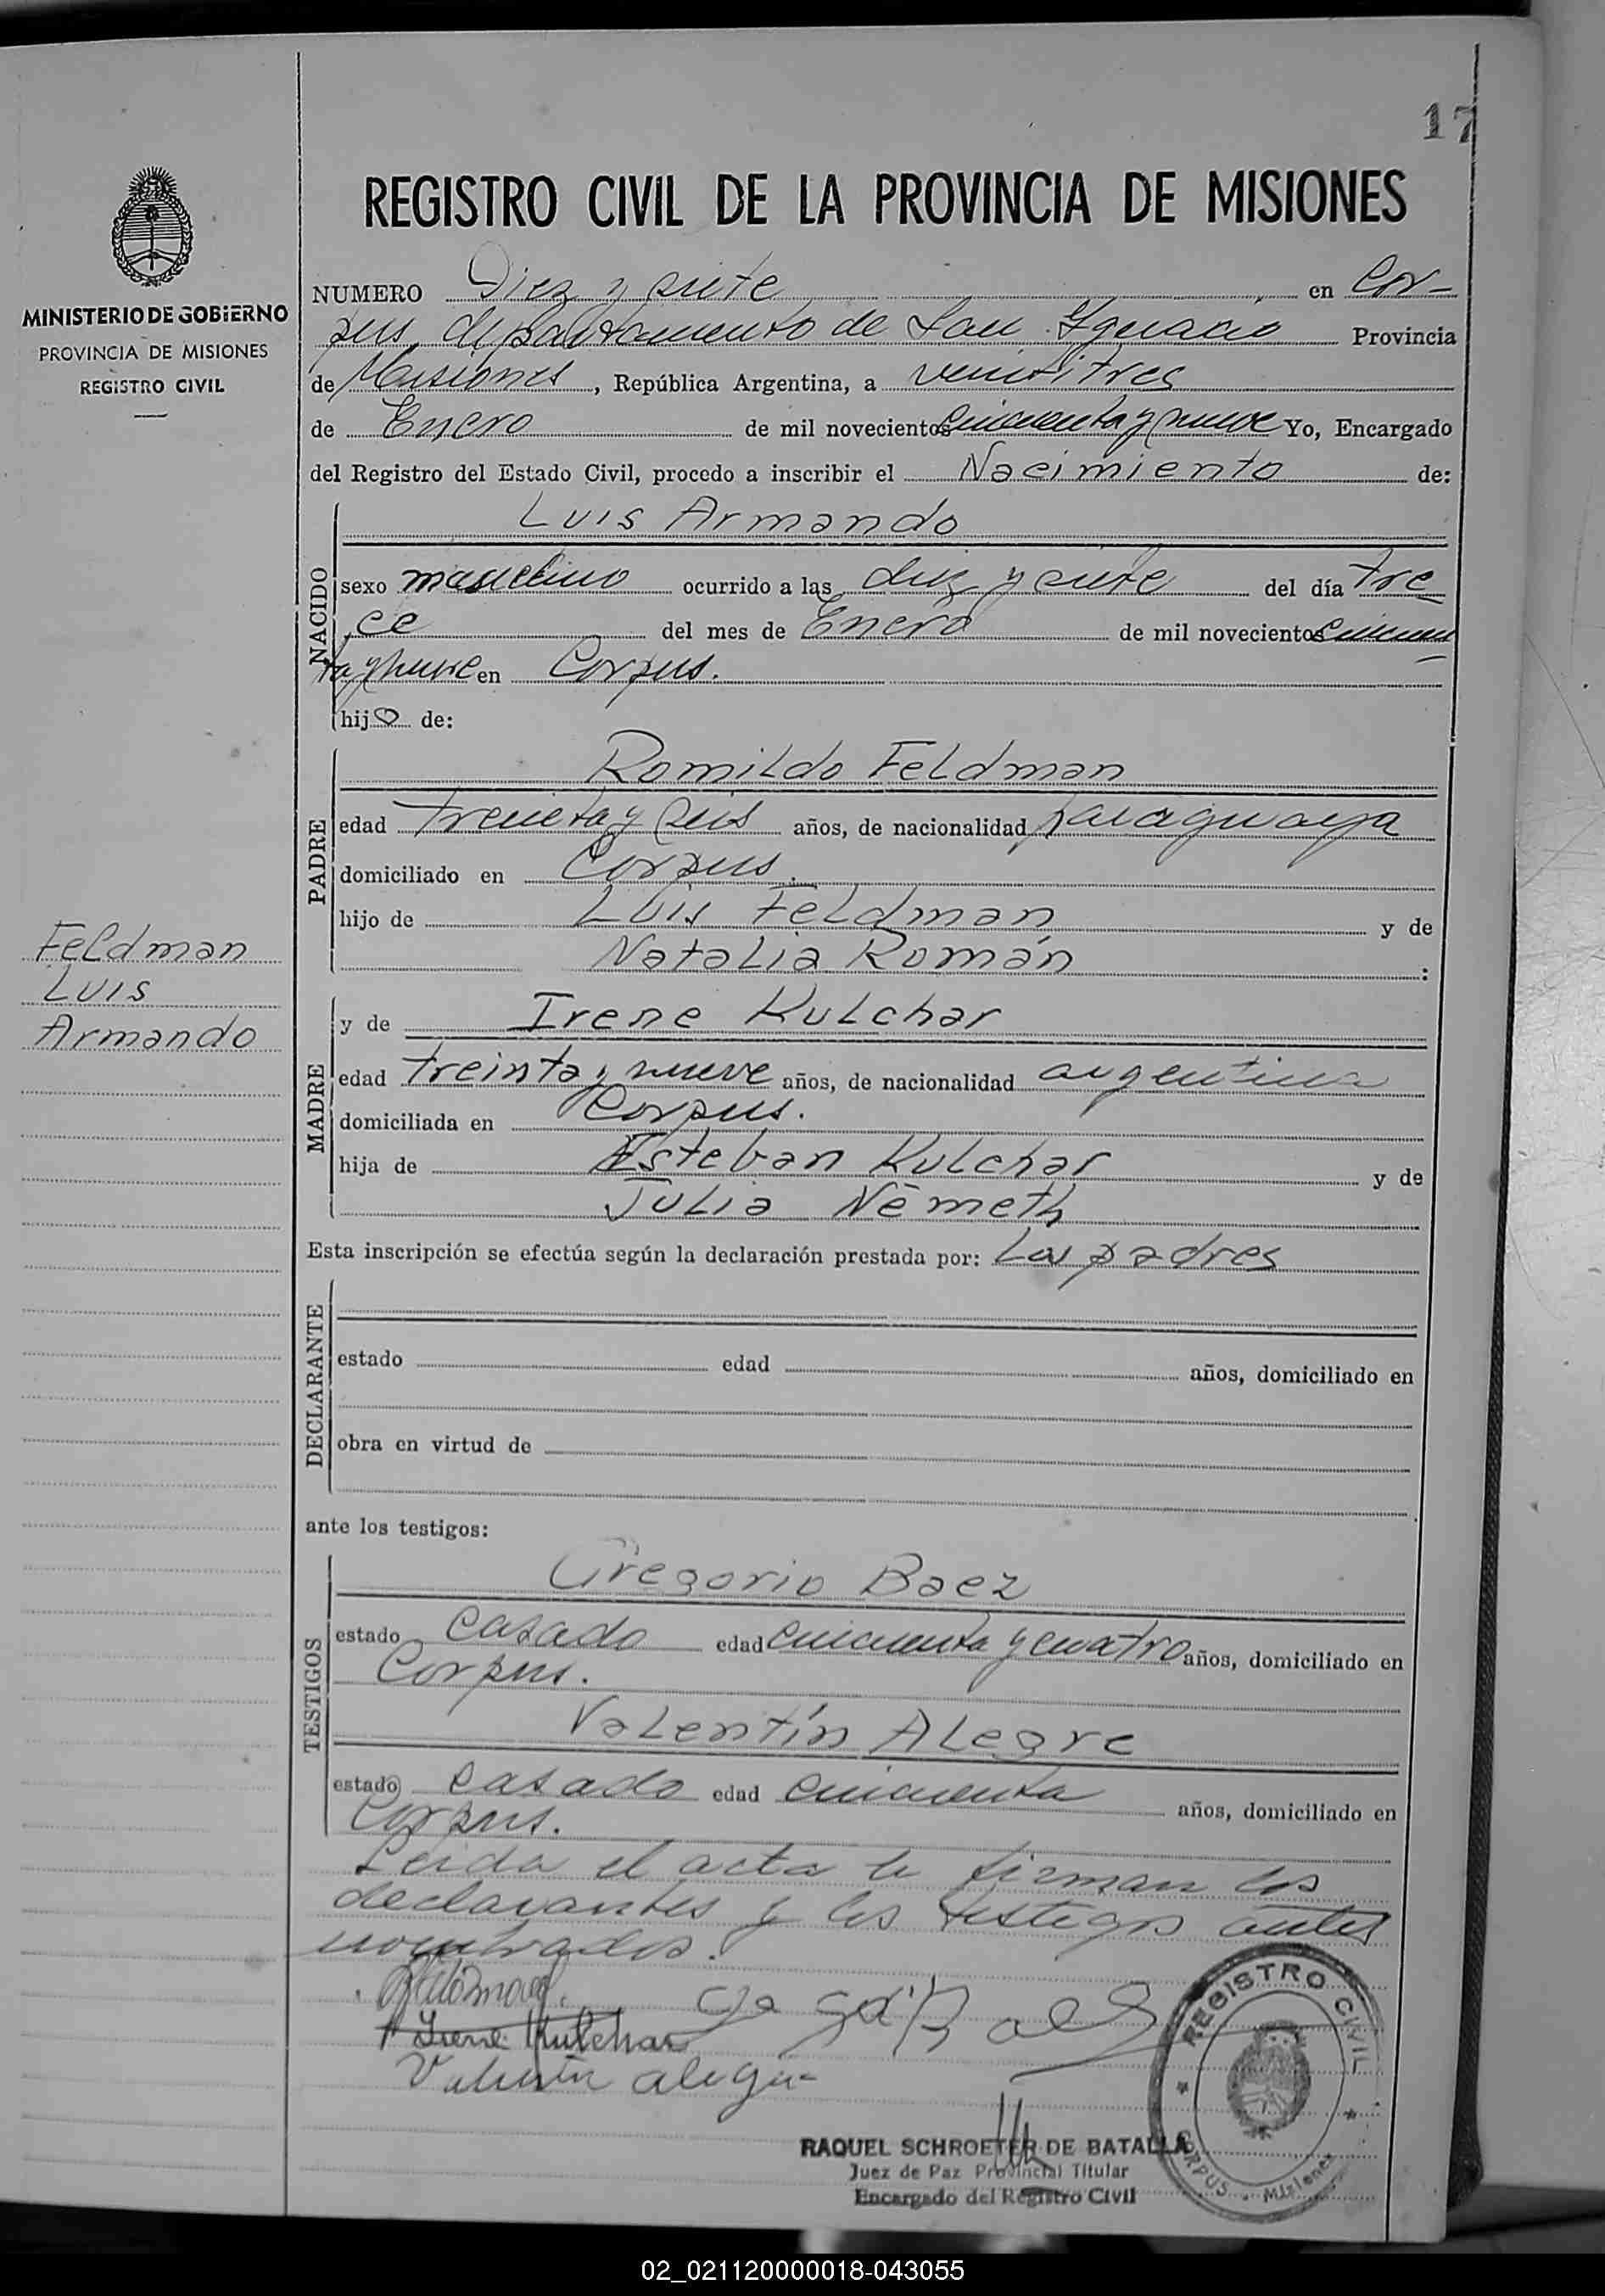 17
REGISTRO CIVIL DE LA PROVINCIA DE MISIONES
MINISTERIO DE GOBIERNO
PROVINCIA DE MISIONES
REGISTRO CIVIL
NUMERO Diez y siete en Cor-
pus, departamento de San Ygnacio Provincia
de Misiones, República Argentina, a veintitres
de Enero de mil novecientos cincuenta y nueve Yo, Encargado
del Registro del Estado Civil, procedo a inscribir el Nacimiento de:
NACIDO
Luis Armando
sexo masculino ocurrido a las diez y siete del día tre-
ce del mes de Enero de mil novecientos cincuen-
ta y nueve en Corpus.
hijo de:
PADRE
Romildo Feldman
edad treinta y seis años, de nacionalidad paraguaya
domiciliado en Corpus.
hijo de Luis Feldman y de
Natalia Román :
Feldman
Luis
Armando
MADRE
y de Irene Kulchar
edad treinta y nueve años, de nacionalidad argentina
domiciliada en Corpus.
hija de Esteban Kulchar y de
Julia Németh
Esta inscripción se efectúa según la declaración prestada por: Los padres
DECLARANTE
estado edad años, domiciliado en
obra en virtud de
ante los testigos:
TESTIGOS
Gregorio Baez
estado casado edad cincuenta y cuatro años, domiciliado en
Corpus.
Valentín Alegre
estado casado edad cincuenta años, domiciliado en
Corpus.
Leida el acta la firman los
declarantes y los testigos antes
nombrados.
Irene Kulchar
Valentin alegre
RAQUEL SCHROETER DE BATALLA
Juez de Paz Provincial Titular
Encargado del Registro Civil
REGISTRO CIVIL
CORPUS - Misiones
02_021120000018-043055